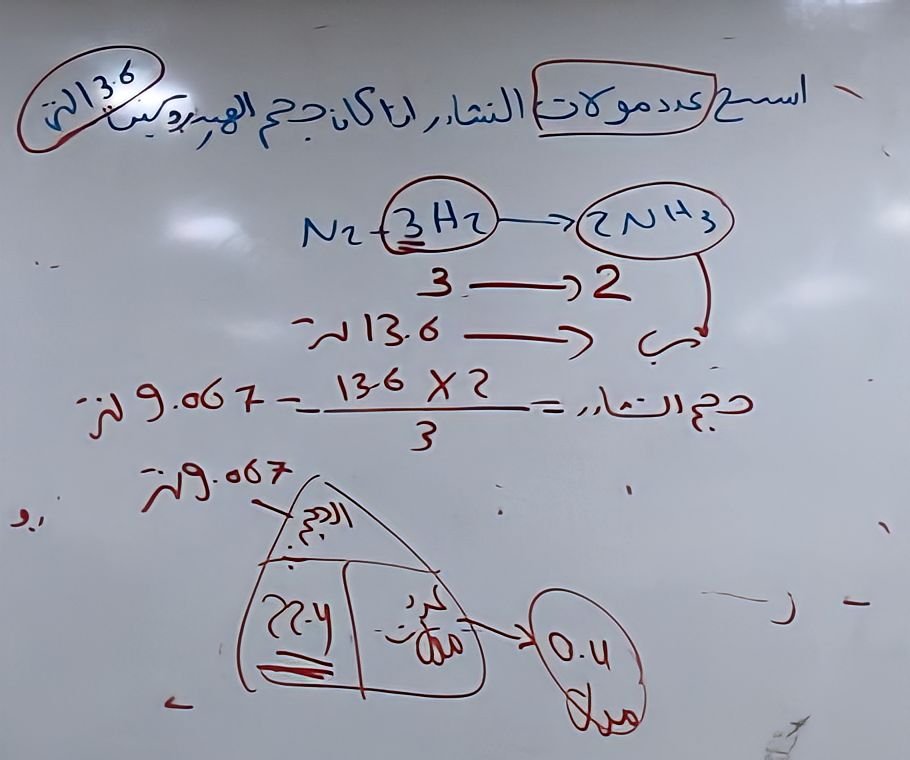 احسب عدد مولات النشادر اذا كان حجم الهيدروجين 13.6 لتر
N2 + 3H2 → 2NH3
3 → 2
13.6 لتر → س
حجم النشادر = 13.6 X 2 / 3 = 9.067 لتر
9.067 لتر
الحجم
22.4
عدد مولات
0.4
مول